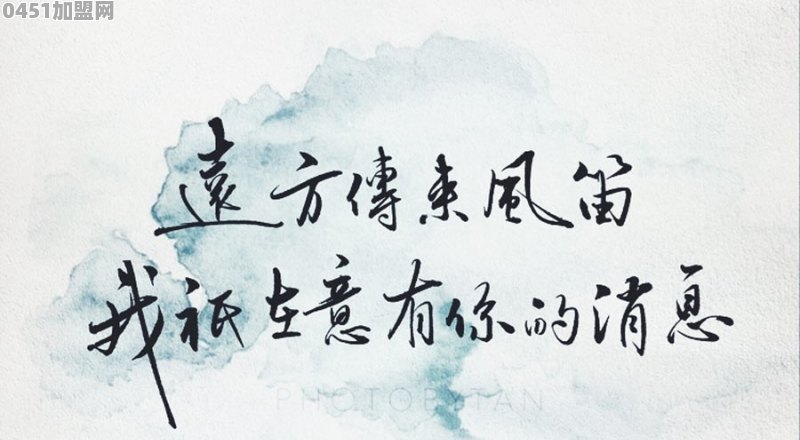 0451加盟网
遠方傳来風笛
我祇在意有你的消息
PHOTOBYTAN